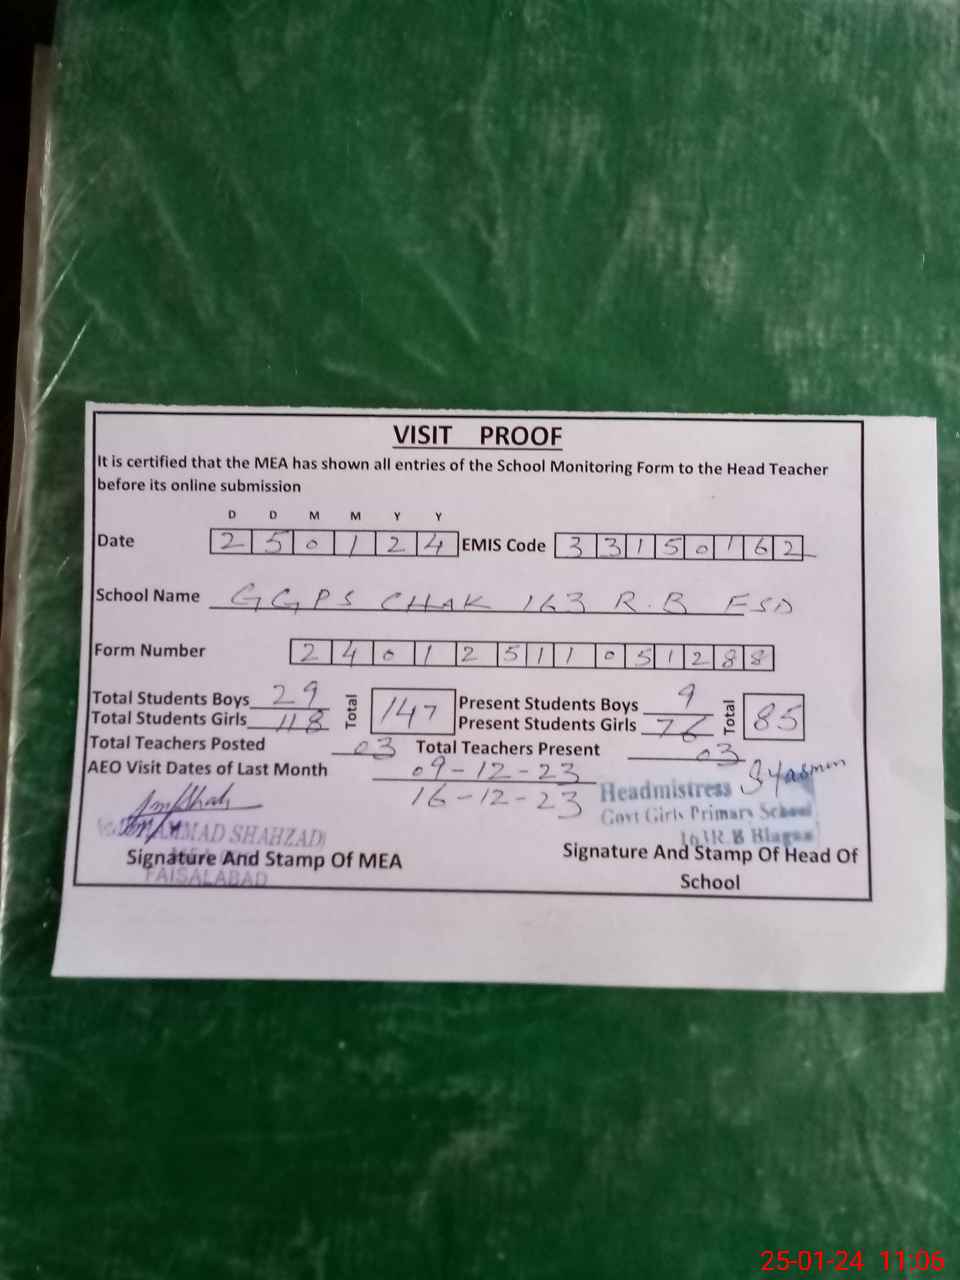 VISIT PROOF
It is certified that the MEA has shown all entries of the School Monitoring Form to the Head Teacher
before its online submission
D D M M Y Y
Date 2 5 0 1 2 4 EMIS Code 3 3 1 5 0 1 6 2
School Name GGPS CHAK 163 R.B FSD
Form Number 2 4 0 1 2 5 1 1 0 5 1 2 8 8
Total Students Boys 29 Total 147 Present Students Boys 9 Total 85
Total Students Girls 118 Present Students Girls 76
Total Teachers Posted 03 Total Teachers Present 03
AEO Visit Dates of Last Month 09-12-23
16-12-23
Headmistress
Govt Girls Primary School
R.B
SHAHZAD
Signature And Stamp Of MEA
FAISALABAD
Signature And Stamp Of Head Of
School
25-01-24 11:06